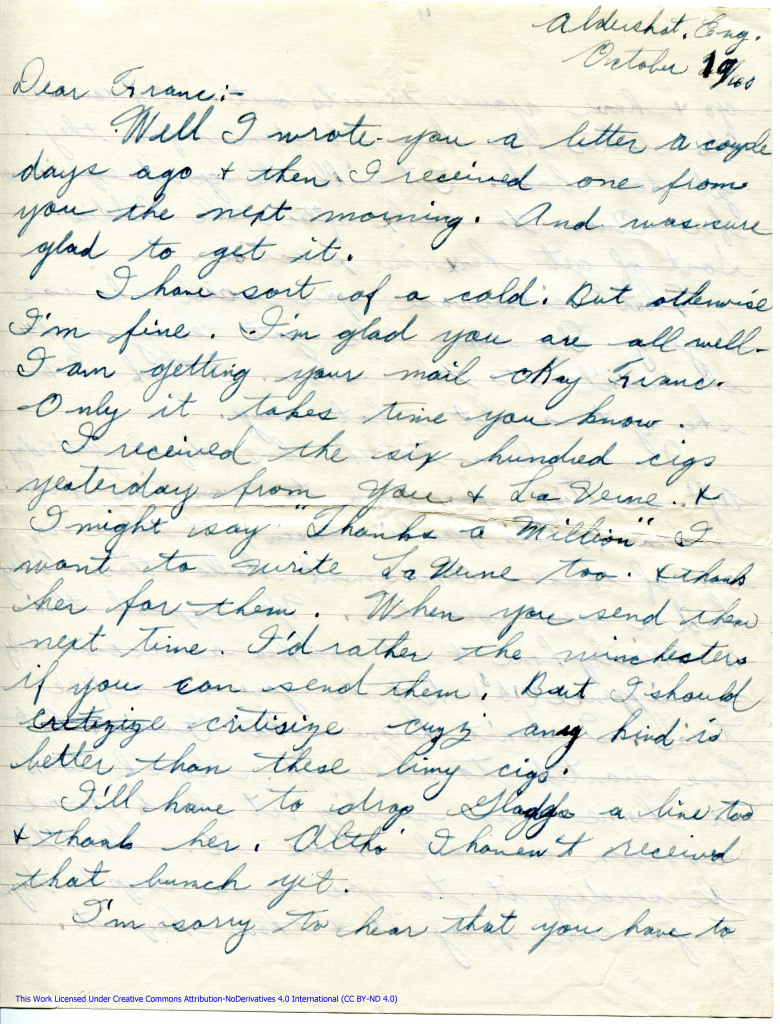 Aldershot, Eng.
October 19/40
Dear Franc:-
Well I wrote you a letter a couple
days ago & then I received one from
you the next morning. And was sure
glad to get it.
I have sort of a cold. But otherwise
I'm fine. I'm glad you are all well.
I am getting your mail okay Franc.
Only it takes time you know.
I received the six hundred cigs
yesterday from you & La Verne. &
I might say "Thanks a Million" I
want to write La Verne too. & thank
her for them. When you send them
next time. I'd rather the winchesters
if you can send them. But I should
critizize critisize cuzz any kind is
better than these limy cigs.
I'll have to drop a line too
& thank her. Altho' I haven't received
that bunch yet.
I'm sorry to hear that you have to
This Work Licensed Under Creative Commons Attribution-NoDerivatives 4.0 International (CC BY-ND 4.0)